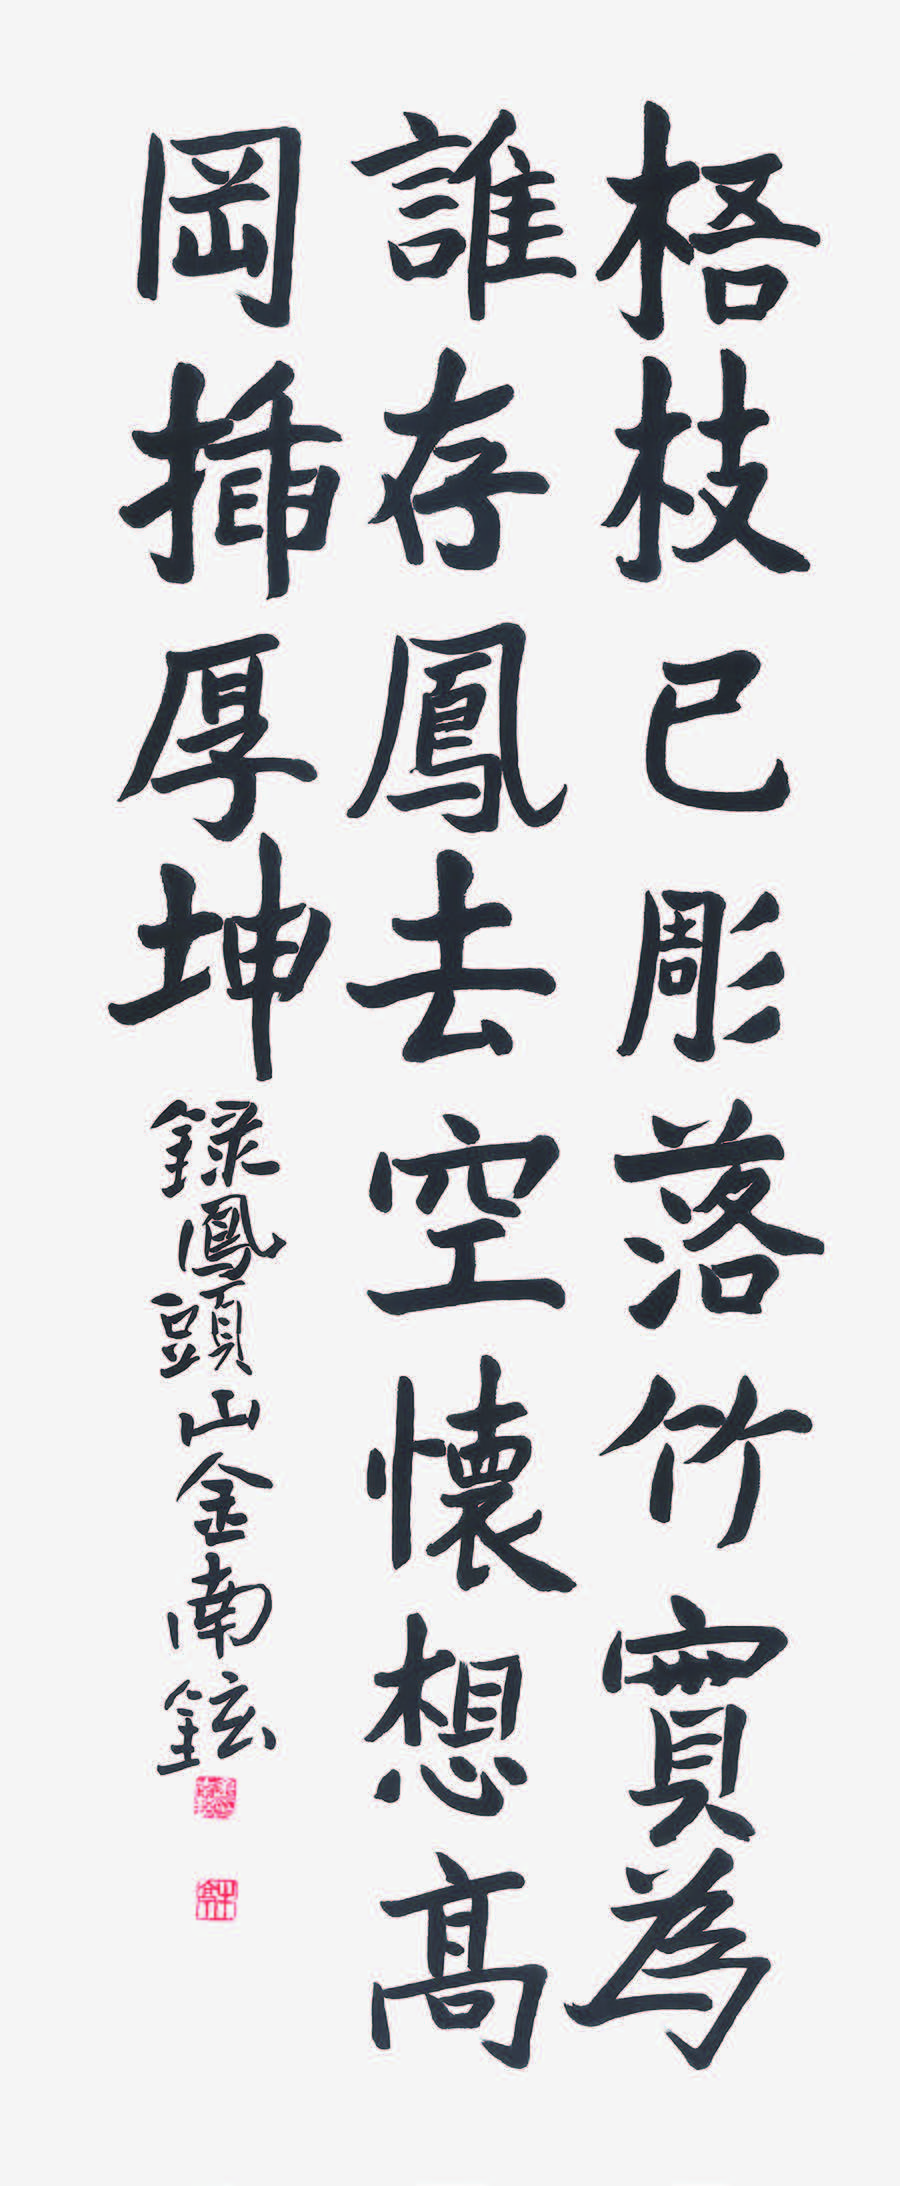 梧枝已彫落竹實為
誰存鳳去空懷想高
岡揷厚坤
錄鳳頭山金南鉉